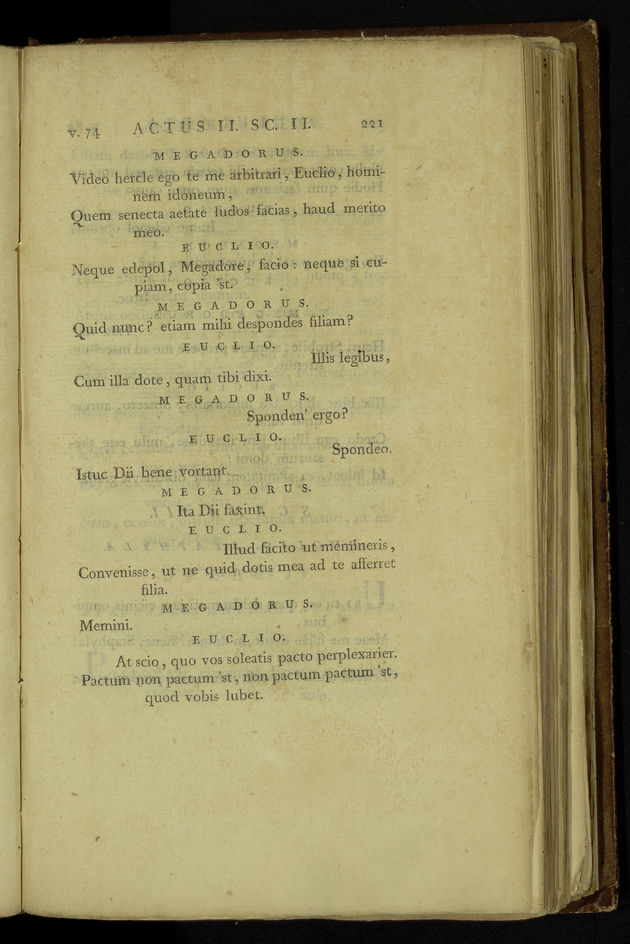 v. 74 ACTUS II. SC. II. 221
MEGADORUS.
Video hercle ego te me arbitrari, Euclio, homi-
nem idoneum,
Quem senecta aetate ludos facias, haud merito
meo.
EUCLIO.
Neque edepol, Megadore, facio: neque si cu-
piam, copia 'st.
MEGADORUS.
Quid nunc? etiam mihi despondes filiam?
EUCLIO.
Illis legibus,
Cum illa dote, quam tibi dixi.
MEGADORUS.
Sponden' ergo?
EUCLIO.
Spondeo.
Istuc Dii bene vortant.
MEGADORUS.
Ita Dii faxint.
EUCLIO.
Illud facito ut memineris,
Convenisse, ut ne quid dotis mea ad te afferret
filia.
MEGADORUS.
Memini.
EUCLIO.
At scio, quo vos soleatis pacto perplexarier.
Pactum non pactum 'st, non pactum pactum 'st,
quod vobis lubet.